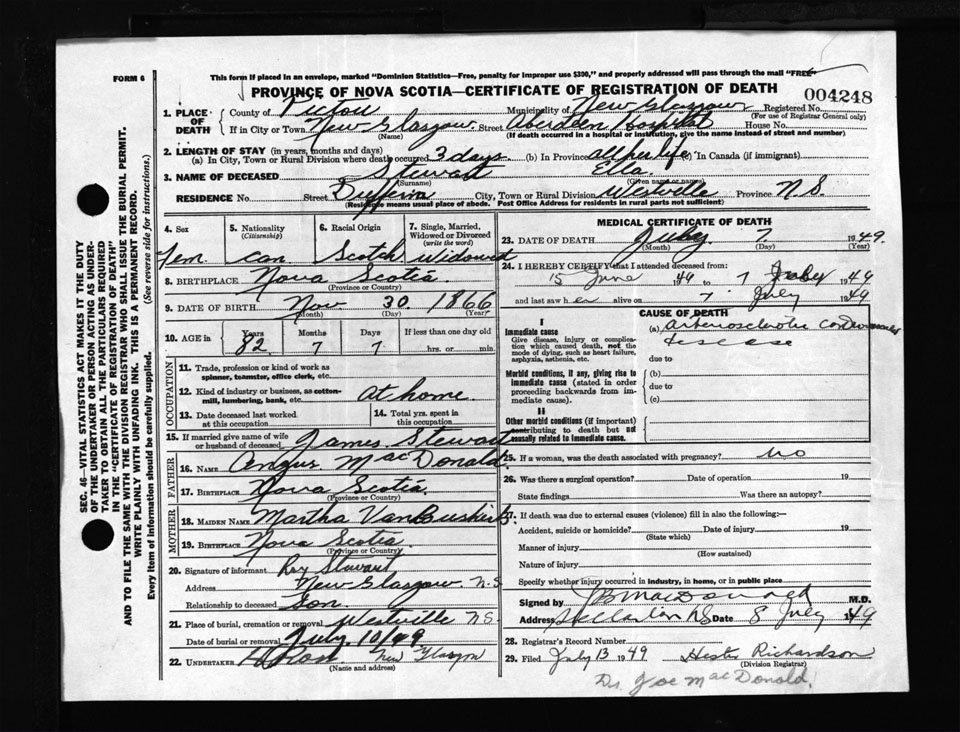 FORM 6
This form if placed in an envelope, marked "Dominion Statistics—Free, penalty for improper use $300," and properly addressed will pass through the mail "FREE"
PROVINCE OF NOVA SCOTIA—CERTIFICATE OF REGISTRATION OF DEATH
004248
1. PLACE OF DEATH County of Pictou Municipality of New Glasgow Registered No.
(For use of Registrar General only)
If in City or Town New Glasgow Street Aberdeen Hospital House No.
(Name) (If death occurred in a hospital or institution, give the name instead of street and number)
2. LENGTH OF STAY (in years, months and days)
(a) In City, Town or Rural Division where death occurred 3 days (b) In Province all her life In Canada (if immigrant)
3. NAME OF DECEASED Stewart Ella
(Surname) (Given name or names)
RESIDENCE No. Street Dufferin City, Town or Rural Division Westville Province N.S.
(Residence means usual place of abode. Post Office Address for residents in rural parts not sufficient)
4. Sex 5. Nationality (Citizenship) 6. Racial Origin 7. Single, Married, Widowed or Divorced (write the word)
Fem can. Scotch Widowed
8. BIRTHPLACE Nova Scotia
(Province or Country)
9. DATE OF BIRTH Nov 30. 1866
(Month) (Day) (Year)
10. AGE in Years Months Days If less than one day old
82 7 7 hrs. or min.
OCCUPATION
11. Trade, profession or kind of work as spinner, teamster, office clerk, etc.
12. Kind of industry or business, as cotton-mill, lumbering, bank, etc. at home.
13. Date deceased last worked at this occupation 14. Total yrs. spent in this occupation
15. If married give name of wife or husband of deceased James Stewart
FATHER
16. NAME Angus MacDonald.
17. BIRTHPLACE Nova Scotia.
(Province or Country)
MOTHER
18. MAIDEN NAME Martha VanBuskirk
19. BIRTHPLACE Nova Scotia
(Province or Country)
20. Signature of informant Roy Stewart
Address New Glasgow N.S.
Relationship to deceased Son.
21. Place of burial, cremation or removal Westville N.S.
Date of burial or removal July 10/49
22. UNDERTAKER New Glasgow
(Name and address)
MEDICAL CERTIFICATE OF DEATH
23. DATE OF DEATH July 7. 1949.
(Month) (Day) (Year)
24. I HEREBY CERTIFY that I attended deceased from:
15 June 1949 to 7 July 1949
and last saw her alive on 7 July 1949
CAUSE OF DEATH
I
Immediate cause
Give disease, injury or complication which caused death, not the mode of dying, such as heart failure, asphyxia, asthenia, etc.
(a) arteriosclerotic disease
due to
Morbid conditions, if any, giving rise to immediate cause (stated in order proceeding backwards from immediate cause).
(b)
due to
(c)
II
Other morbid conditions (if important) contributing to death but not causally related to immediate cause.
25. If a woman, was the death associated with pregnancy? no
26. Was there a surgical operation? Date of operation 19
State findings Was there an autopsy?
27. If death was due to external causes (violence) fill in also the following:—
Accident, suicide or homicide? Date of injury 19
(State which)
Manner of injury
(How sustained)
Nature of injury
Specify whether injury occurred in industry, in home, or in public place
Signed by JB MacDonald M.D.
Address Stellarton NS Date 8 July 1949
28. Registrar's Record Number
29. Filed July 13 1949 Hester Richardson
(Division Registrar)
Dr. Joe MacDonald.
SEC. 46—VITAL STATISTICS ACT MAKES IT THE DUTY
OF THE UNDERTAKER OR PERSON ACTING AS UNDER-
TAKER TO OBTAIN ALL THE PARTICULARS REQUIRED
IN THE "CERTIFICATE OF REGISTRATION OF DEATH"
AND TO FILE THE SAME WITH THE DIVISION REGISTRAR WHO SHALL ISSUE THE BURIAL PERMIT.
WRITE PLAINLY WITH UNFADING INK. THIS IS A PERMANENT RECORD.
Every item of information should be carefully supplied. (See reverse side for instructions.)